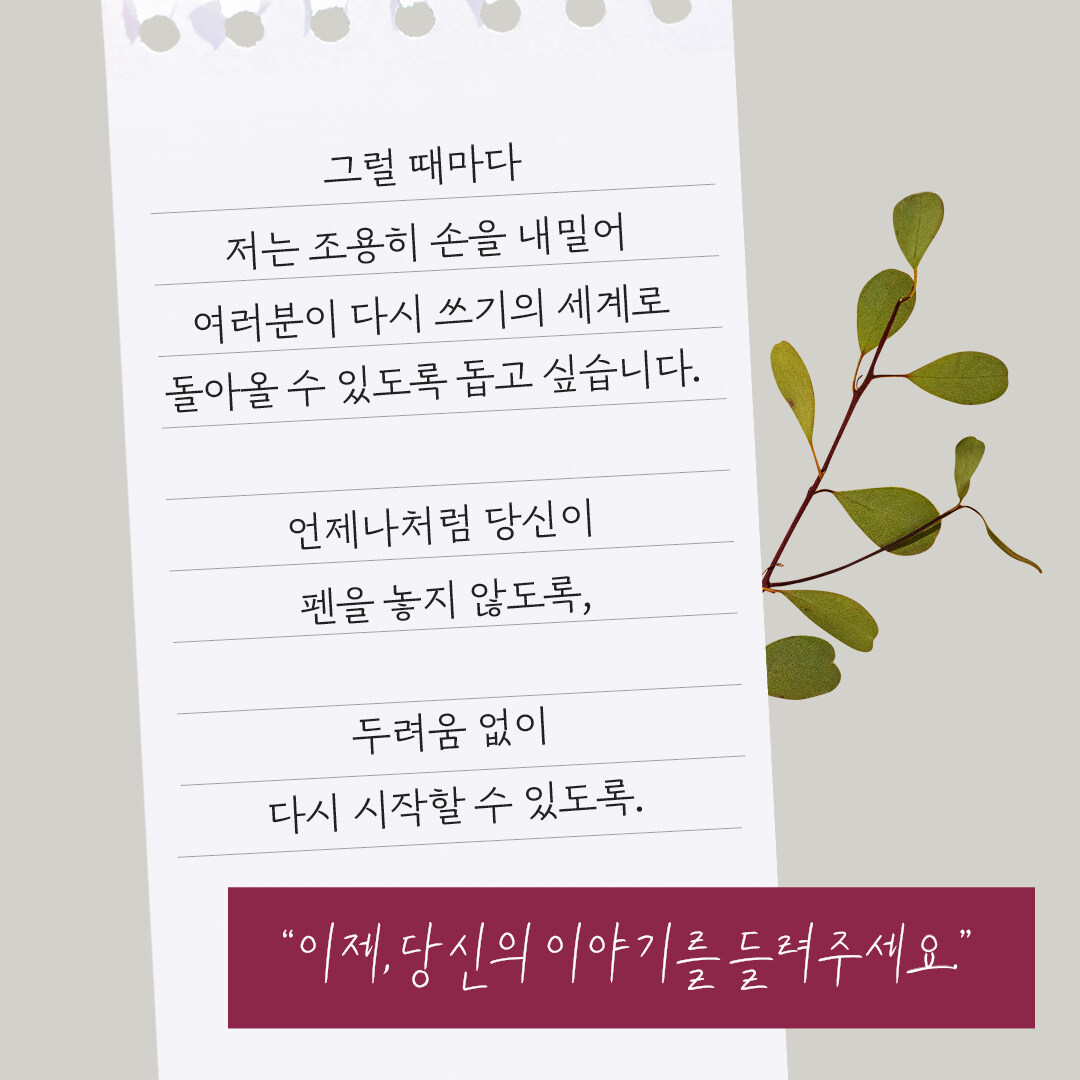 그럴 때마다
저는 조용히 손을 내밀어
여러분이 다시 쓰기의 세계로
돌아올 수 있도록 돕고 싶습니다.
언제나처럼 당신이
펜을 놓지 않도록,
두려움 없이
다시 시작할 수 있도록.
“이제, 당신의 이야기를 들려주세요.”